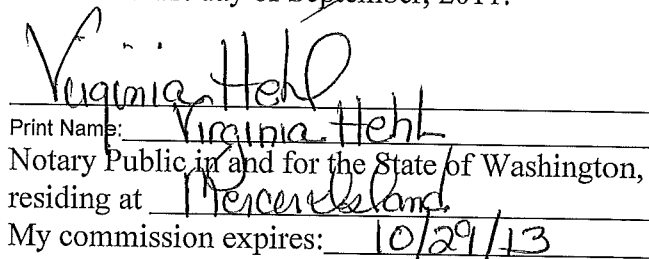 day of September, 2011.
Virginia Hehl
Print Name: Virginia Hehl
Notary Public in and for the State of Washington,
residing at Mercer Island
My commission expires: 10/29/13